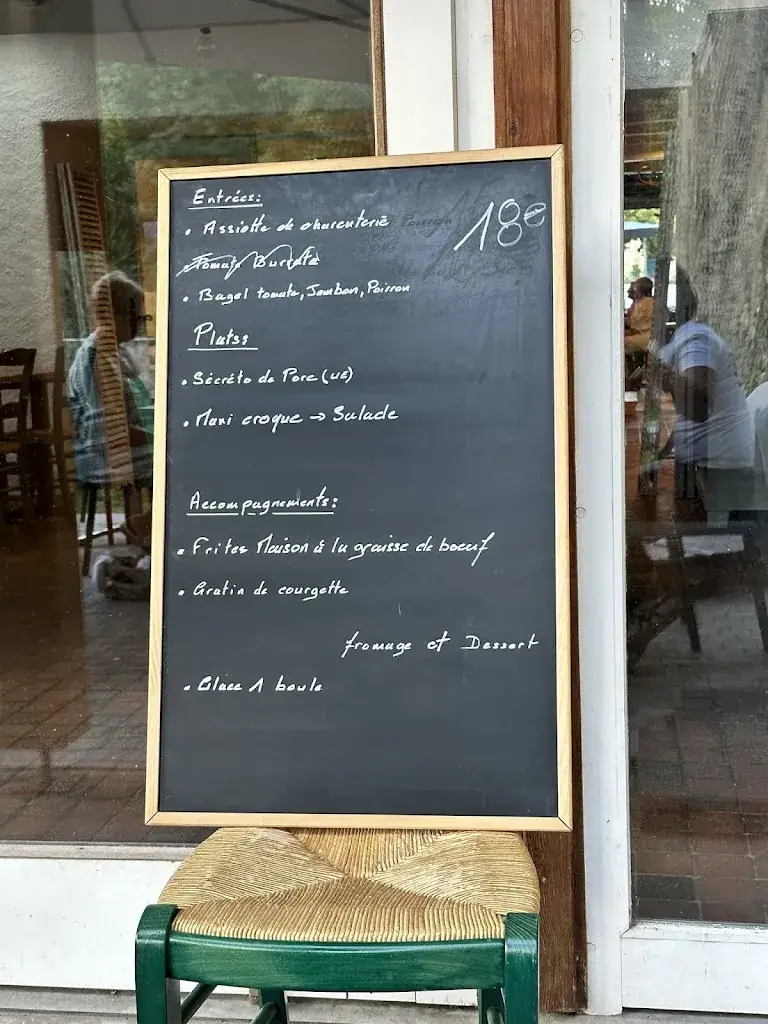 Entrées:
18€
• Assiette de charcuterie
• Tomate Burrata
• Bagel tomate, Jambon, Poivron
Platss
• Sécréto de Porc (UE)
• Maxi croque → Salade
Accompagnements:
• Frites Maison à la graisse de boeuf
• Gratin de courgette
fromage et Dessert
• Glace 1 boule